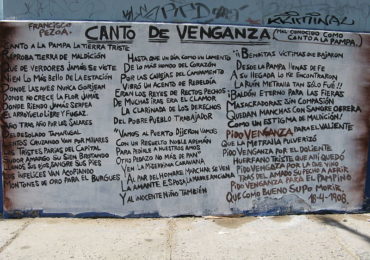 FRANCISCO
PEZOA.
CANTO DE VENGANZA
(MAL CONOCIDO COMO
CANTO A LA PAMPA)
KRZIMINAL
CANTO A LA PAMPA LA TIERRA TRISTE
RÉPROBA TIERRA DE MALDICIÓN
QUE DE VERDORES JAMÁS SE VISTE
NI EN LO MÁS BELLO DE LA ESTACIÓN
DONDE LAS AVES NUNCA GORJEAN
DONDE NO CRECE LA FLOR JAMÁS
DONDE RIENDO JAMÁS SERPEA
EL ARROYUELO LIBRE Y FUGAZ.
AÑO TRAS AÑO POR LOS SALARES
DEL DESOLADO TAMARUGAL
LENTOS CRUZANDO VAN POR MILLARES
LOS TRISTES PARIAS DEL CAPITAL
SUDOR AMARGO SU SIEN BROTANDO
LLANTO SUS OJOS, SANGRE SUS PIES
LOS INFELICES VAN ACOPIANDO
MONTONES DE ORO PARA EL BURGUÉS
HASTA QUE UN DÍA COMO UN LAMENTO
DE LO MÁS HONDO DEL CORAZÓN
POR LAS CALLEJAS DEL CAMPAMENTO
VIBRÓ UN ACENTO DE REBELIÓN
ERAN LOS AYES DE RECTOS PECHOS
DE MUCHAS IRAS ERA EL CLAMOR
LA CLARINADA DE LOS DERECHOS
DEL POBRE PUEBLO TRABAJADOR
"VAMOS AL PUERTO DIJERON VAMOS
CON UN RESUELTO NOBLE ADEMÁN
PARA PEDIRLE A NUESTROS AMOS
OTRO PEDAZO NO MÁS DE PAN"
Y EN LA MISÉRRIMA CARAVANA
AL PAR DEL HOMBRE MARCHAR SE VEN
LA AMANTE ESPOSA LA MADRE ANCIANA
Y AL INOCENTE NIÑO TAMBIÉN
BENDITAS VÍCTIMAS QUE BAJARON
DESDE LA PAMPA LLENAS DE FE
A SU LLEGADA LO QUE ENCONTRARON
LA RUIN METRALLA TAN SÓLO FUE!
BALDÓN ETERNO PARA LAS FIERAS
MASACRADORAS SIN COMPASIÓN
QUEDAN MANCHAS CON SANGRE OBRERA
COMO UN ESTIGMA DE MALDICIÓN!
PIDO VENGANZA PARA EL VALIENTE
QUE LA METRALLA PULVERIZÓ
PIDO VENGANZA POR EL DOLIENTE
HUÉRFANO TRISTE QUE ALLÍ QUEDÓ
PIDO VENGANZA POR LA QUE VINO
TRAS DEL AMADO SU PECHO A ABRIR
PIDO VENGANZA PARA EL PAMPINO
QUE COMO BUENO SUPO MORIR.
1908.